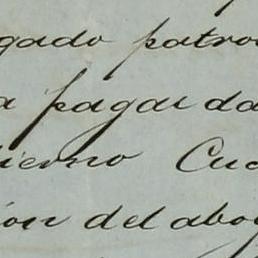 gado patro
a pagar da
ierno Cua
ión del abog